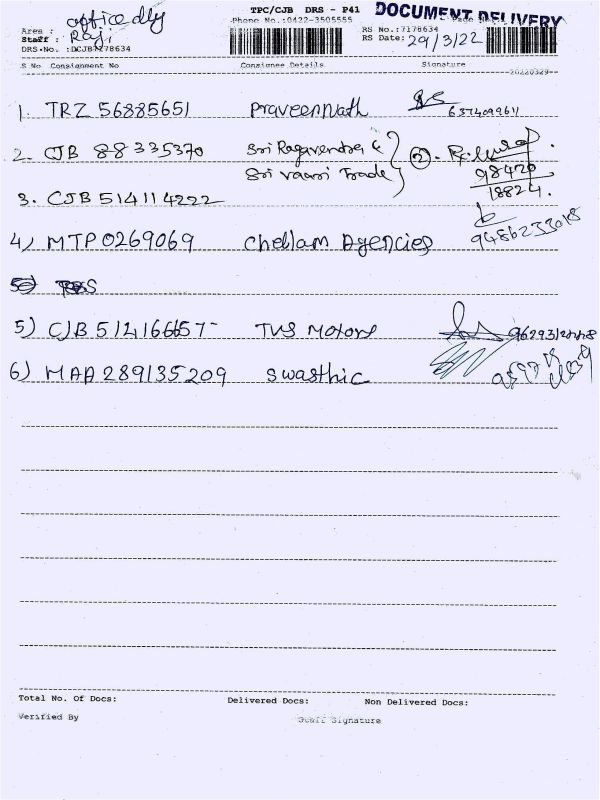 TPC/CJB DRS - P41
DOCUMENT DELIVERY
Area : office dly
Phone No.:0422-3505555
RS No.:7178634
Staff : Raji
RS Date: 29/3/22
DRS-No. :DCJB7178634
S No Consignment No Consignee Details Signature
20220329
1. TRZ 56885651 Praveennath 6374099611
2. CJB 88335370 Sri Ragavendra &
Sri Vaari Trade
②
98420
18824.
3. CJB 514114222
4) MTP0269069 Chellam Agencies
5) CJB 51416657 TVS Motors
6) MAA 289135209 Swasthic
Total No. Of Docs: Delivered Docs: Non Delivered Docs:
Verified By Staff Signature